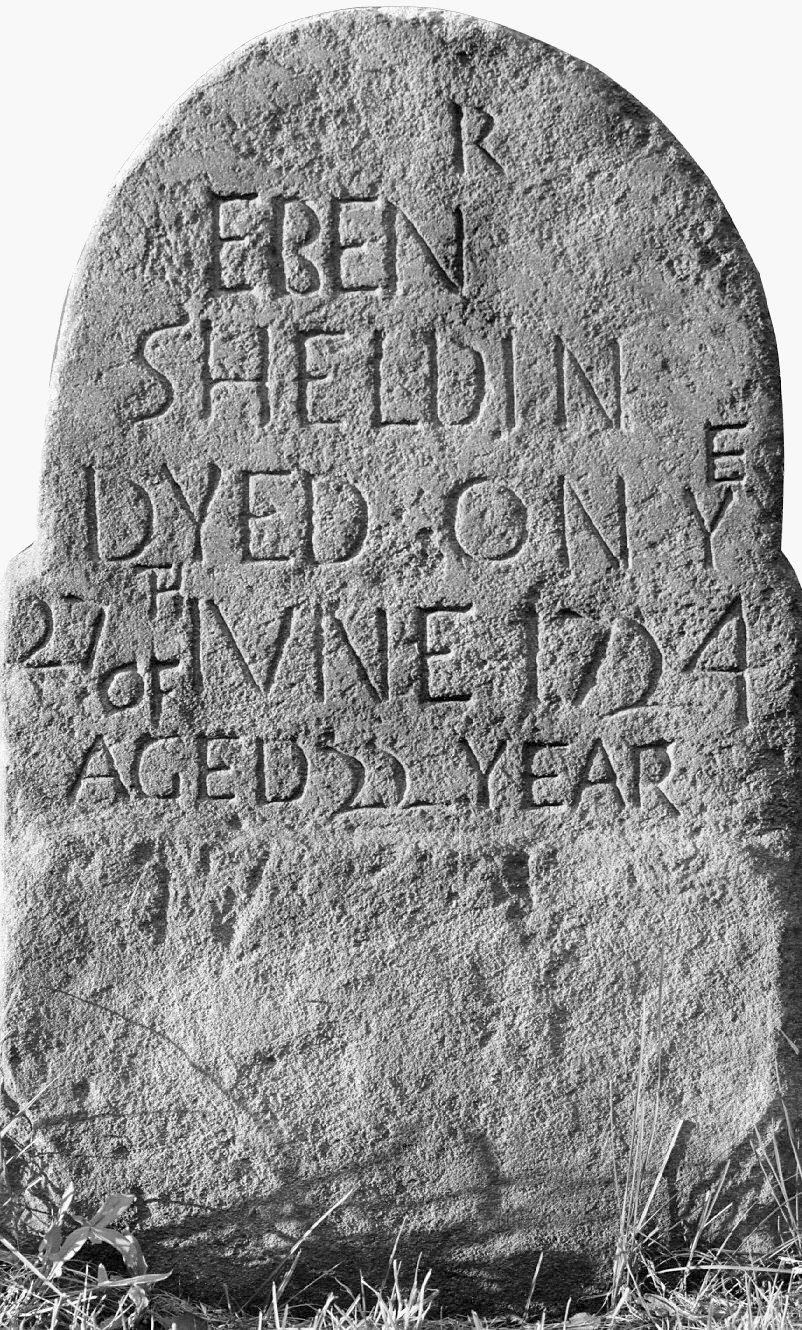 EBENR
SHELDIN
DYED ON YE
27TH OF IVNE 1724
AGED 22 YEAR